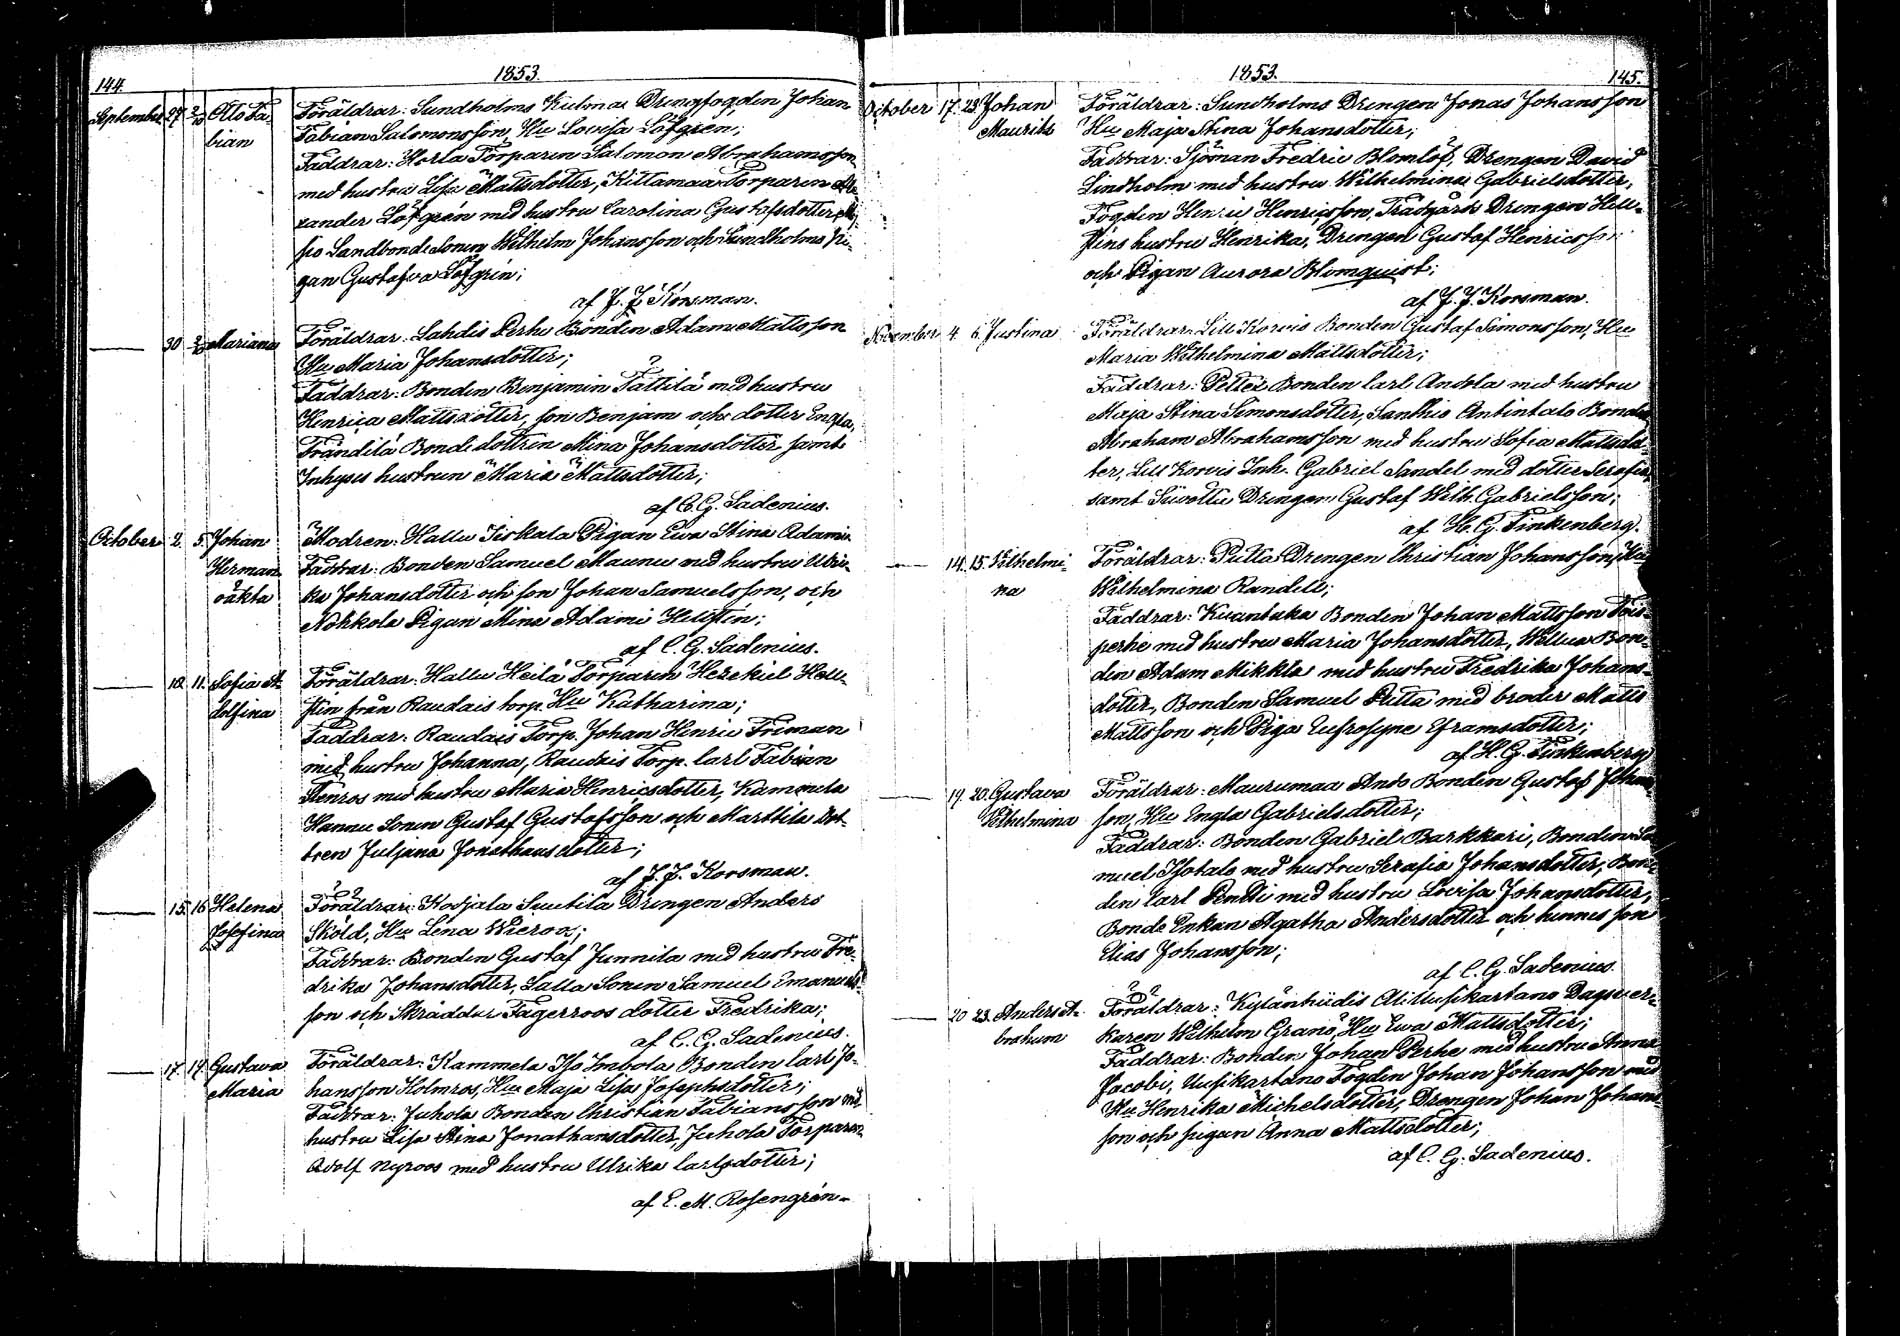 144.
1853.
September 27. 2/10 Otto Fa-
bian
Föräldrar: Sundholms Kulmas Drengfogden Johan
Fabian Salomonsson, Hu Lovisa Löfgren;
Faddrar: Horla Torparen Salomon Abrahamsson
med hustru Lisa Mattsdotter, Kittamaa Torparen Ale
xander Löfgrén med hustru Carolina Gustafsdotter,
po Landbonde Sonen Wilhelm Johansson och Sundholms Pi-
gan Gustafva Löfgrén;
af J. J. Korsman.
30 2/10 Mariana
Föräldrar: Lahdis Perhe Bonden Adam Mattsson
Hu Maria Johansdotter;
Faddrar: Bonden Benjamin Tättilä med hustru
Henrica Mattsdotter, son Benjam och dotter Engla,
Frändilä Bondedottren Mina Johansdotter samt
Inhyses hustrun Maria Mattsdotter;
af C. G. Sadenius.
October 2. 5. Johan
Herman
oäkta
Modren: Hallu Seskala Pigan Ewa Stina Adami
Faddrar: Bonden Samuel Maunu med hustru Ulri-
ka Johansdotter och son Johan Samuelsson, och
Nohkola Pigan Mina Adami Hellstén;
af C. G. Sadenius.
10. 11. Sofia A-
dolfina
Föräldrar: Hallu Heilä Torparen Hezekiel Hell-
stén från Raudais torp. Hu Katharina;
Faddrar: Raudais Torp. Johan Henric Friman
med hustru Johanna, Raudais Torp. Carl Fabian
Stenros med hustru Maria Henricsdotter, Kammela
Hannu Sonen Gustaf Gustafsson och Marttila Dot-
tren Juliana Jonathansdotter;
af J. J. Korsman.
15. 16 Helena
Josefina
Föräldrar: Kosjala Suutila Drengen Anders
Sköld, Hu Lena Wierox;
Faddrar: Bonden Gustaf Junnila med hustru Fre-
drika Johansdotter, Salla Sonen Samuel Emanuels-
son och Skräddar Fagerroos dotter Fredrika;
af C. G. Sadenius.
17. 19. Gustava
Maria
Föräldrar: Kammela Iso Imbola Bonden Carl Jo-
hansson Holmros, Hu Maja Lisa Josephsdotter;
Faddrar: Juhola Bonden Christian Fabiansson med
hustru Lisa Stina Jonathansdotter, Juhola Torparen
Adolf Nyroos med hustru Ulrika Carlsdotter;
af E. M. Rosengrén.
1853.
145.
October 17. 23. Johan
Maurits
Föräldrar: Sundholms Drengen Jonas Johansson
Hu Maja Stina Johansdotter;
Faddrar: Sjöman Fredric Blomlöf, Drengen David
Lindholm med hustru Wilhelmina Gabrielsdotter,
Fogden Henric Henricsson, Trädgårds Drengen Hell-
sténs hustru Henrika, Drengen Gustaf Henricsson
och Pigan Aurora Blomquist;
af J. J. Korsman.
November 4. 6. Justina
Föräldrar: Lill Korvis Bonden Gustaf Simonsson, Hu
Maria Wilhelmina Mattsdotter;
Faddrar: Pettes Bonden Carl Andola med hustru
Maja Stina Simonsdotter, Santhio Antintalo Bonden
Abraham Abrahamsson med hustru Sofia Mattsdot-
ter, Lill Korvis Inh. Gabriel Sandel med dotter Serafia,
samt Drengen Gustaf Wilh. Gabrielsson;
af H. G. Finkenberg.
14. 15. Wilhelmi-
na
Föräldrar: Putta Drengen Christian Johansson, Hu
Wilhelmina Randell;
Faddrar: Kuanbaka Bonden Johan Mattsson
perhe med hustru Maria Johansdotter, Wellua Bon-
den Adam Mikkla med hustru Fredrika Johans-
dotter, Bonden Samuel Putta med broder Matts
Mattsson och Piga Eufrosyne Eframsdotter;
af H. G. Finkenberg
19. 20. Gustava
Wilhelmina
Föräldrar: Maurumaa Ando Bonden Gustaf Johans-
son, Hu Engla Gabrielsdotter;
Faddrar: Bonden Gabriel Barkkari, Bonden Sa-
muel Isotalo med hustru Serafia Johansdotter, Bon-
den Carl Pentti med hustru Lovisa Johansdotter,
Bonde Enkan Agatha Andersdotter och hennes son
Elias Johansson;
af C. G. Sadenius.
20 23. Anders A-
braham
Föräldrar: Kylänhiidis Ali Uusikartano Dagsver-
karen Wilhelm Granö, Hu Ewa Mattsdotter;
Faddrar: Bonden Johan Perhe med hustru Anna
Jacobi, Uusikartano Fogden Johan Johansson med
Hu Henrika Michelsdotter, Drengen Johan Johans-
son och pigan Anna Mattsdotter;
af C. G. Sadenius.